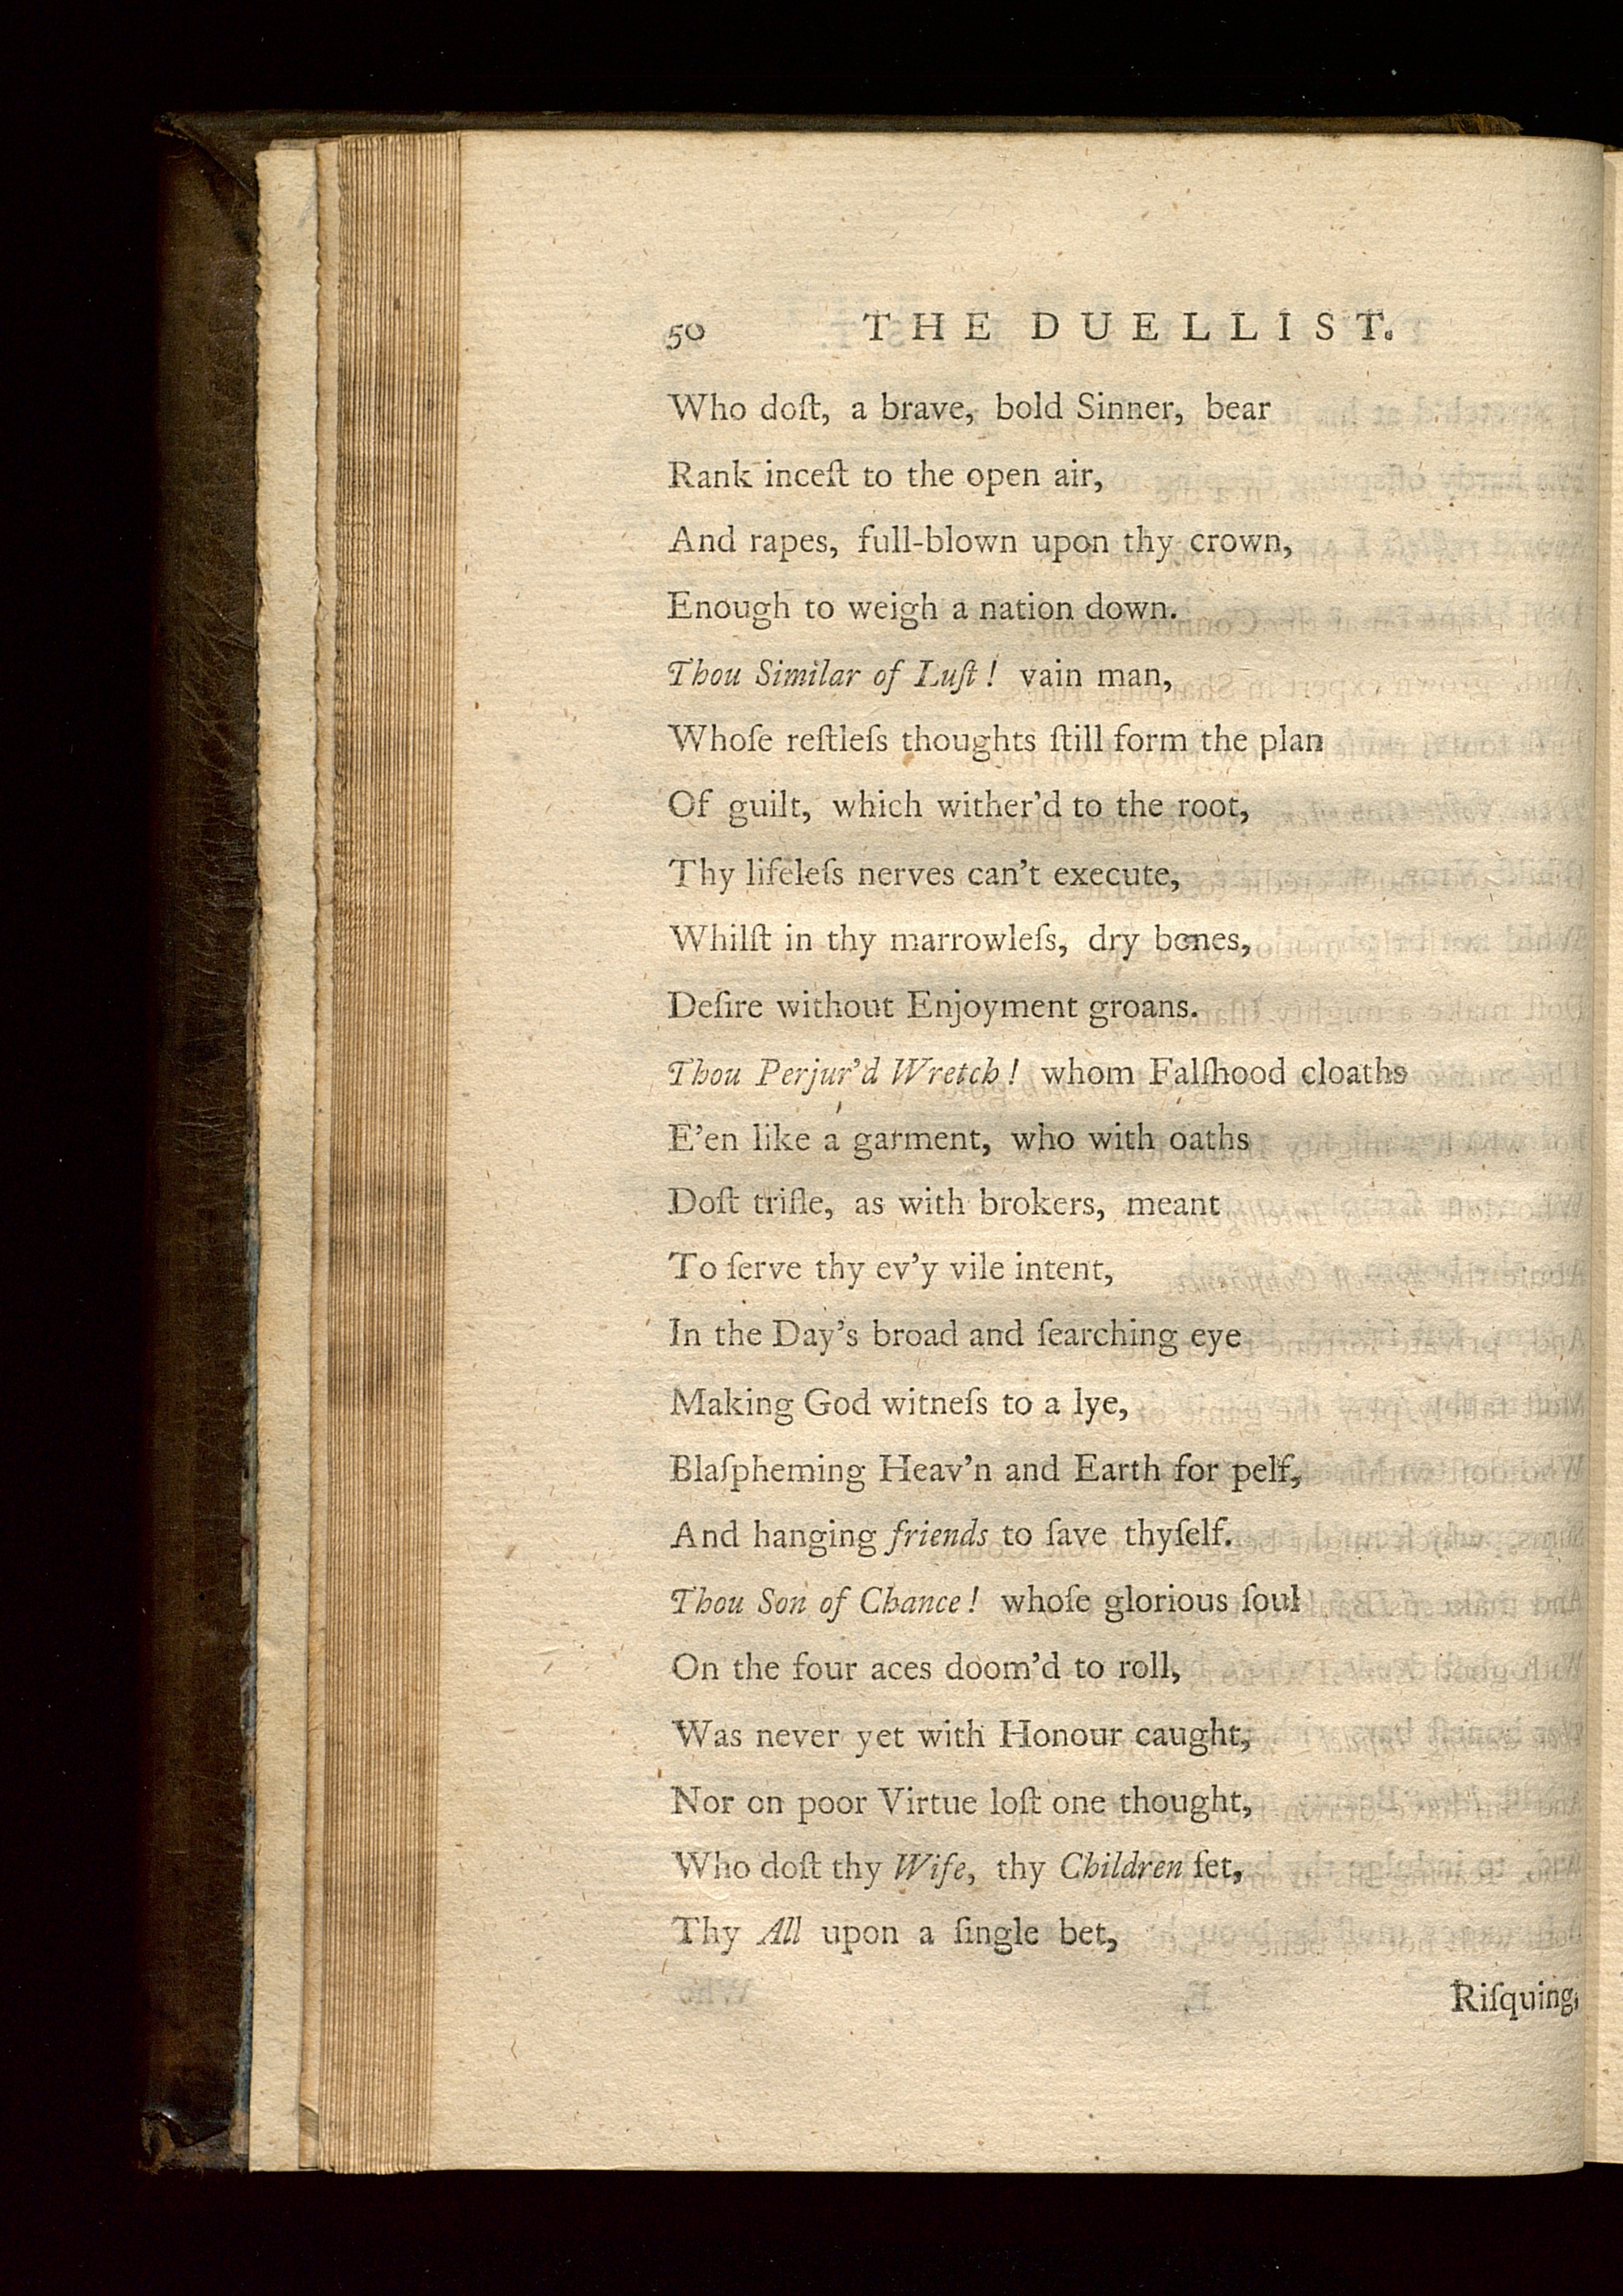 50 THE DUELLIST.
Who doſt, a brave, bold Sinner, bear
Rank inceſt to the open air,
And rapes, full-blown upon thy crown,
Enough to weigh a nation down.
Thou Similar of Luſt! vain man,
Whoſe reſtleſs thoughts ſtill form the plan
Of guilt, which wither'd to the root,
Thy lifeleſs nerves can't execute,
Whilſt in thy marrowleſs, dry bones,
Deſire without Enjoyment groans.
Thou Perjur'd Wretch! whom Falſhood cloaths
E'en like a garment, who with oaths
Doſt trifle, as with brokers, meant
To ſerve thy ev'y vile intent,
In the Day's broad and ſearching eye
Making God witneſs to a lye,
Blaſpheming Heav'n and Earth for pelf,
And hanging friends to ſave thyſelf.
Thou Son of Chance! whoſe glorious ſoul
On the four aces doom'd to roll,
Was never yet with Honour caught,
Nor on poor Virtue loſt one thought,
Who doſt thy Wife, thy Children ſet,
Thy All upon a ſingle bet,
Riſquing,